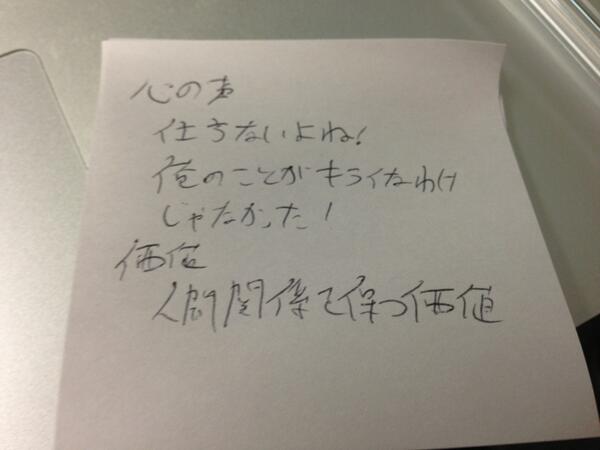 心の声
仕方ないよね!
俺のことがキライなわけ
じゃなかった!
価値
人間関係を保つ価値